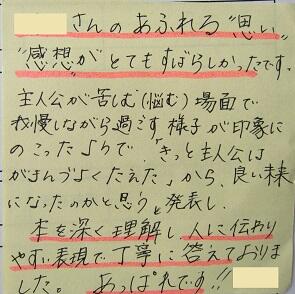 さんのあふれる"思い"
"感想"がとてもすばらしかったです。
主人公が苦しむ(悩む)場面で
我慢しながら過ごす様子が印象に
のこったようで、「きっと主人公は
がまんづよくたえた」から、良い未来
になったのかと思うと発表し、
本を深く理解し、人に伝わり
やすい表現で丁寧に答えておりま
した。あっぱれです!!